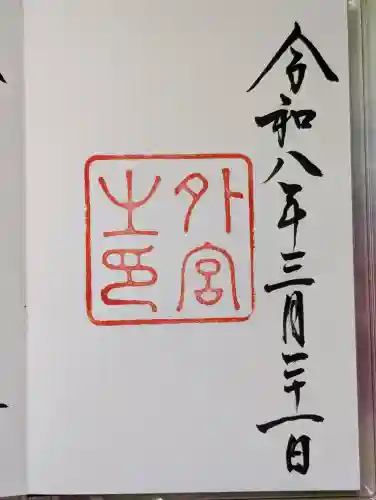 令和八年三月二十一日
外宮
之印